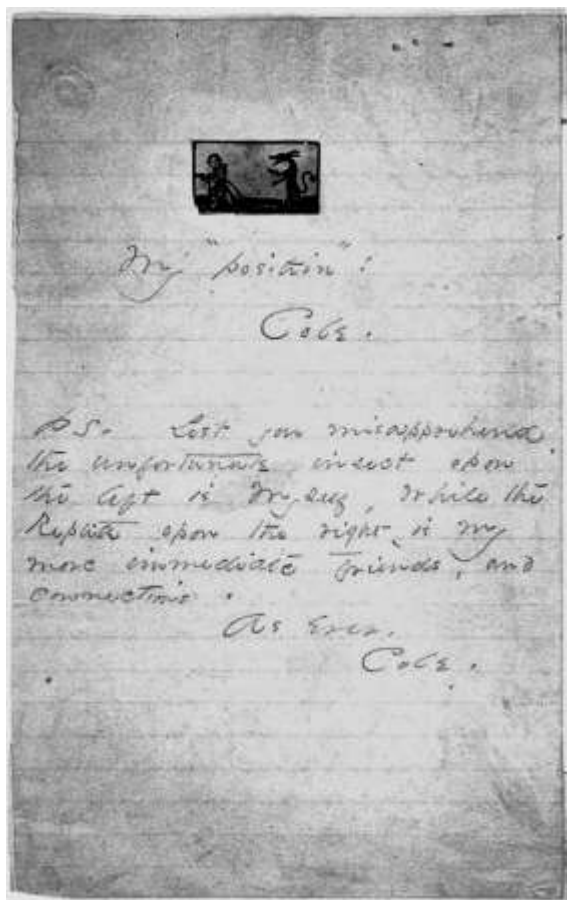 My "position"!
Cole.
P.S. Lest you misapprehend
the unfortunate insect upon
the left is Myself, While the
Reptile upon the right, is my
more immediate friends, and
connections.
As Ever.
Cole.